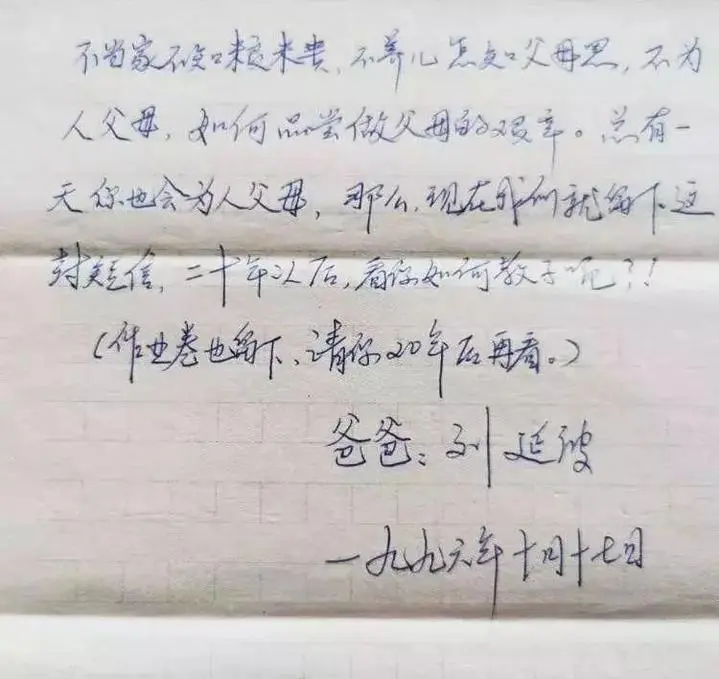 不当家不知粮米贵,不养儿怎知父母恩,不为
人父母,如何品尝做父母的艰辛。总有一
天你也会为人父母,那么,现在我们就留下这
封短信,二十年以后,看你如何教子呢?!
(作业卷也留下,请你20年后再看。)
爸爸:刘延波
一九九六年十月十七日